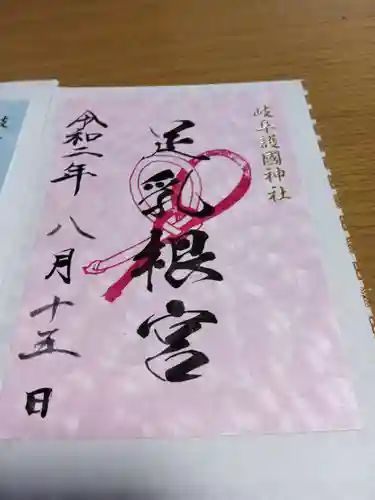 岐阜護國神社
足乳根宮
令和二年八月十五日